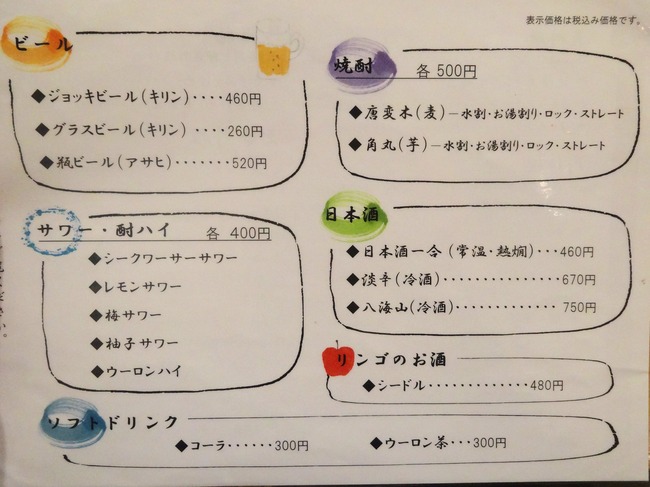 表示価格は税込み価格です。
ビール
◆ジョッキビール(キリン)････460円
◆グラスビール(キリン)････260円
◆瓶ビール(アサヒ)･･･････520円
焼酎 各 500円
◆唐変木(麦)－水割･お湯割り･ロック･ストレート
◆角丸(芋)－水割･お湯割り･ロック･ストレート
サワー・酎ハイ 各 400円
◆シークワーサーサワー
◆レモンサワー
◆梅サワー
◆柚子サワー
◆ウーロンハイ
日本酒
◆日本酒一合(常温･熱燗)･･･460円
◆淡辛(冷酒)･･････････････670円
◆八海山(冷酒)････････････ 750円
リンゴのお酒
◆シードル･････････････480円
ソフトドリンク
◆コーラ･･････300円 ◆ウーロン茶･･･300円